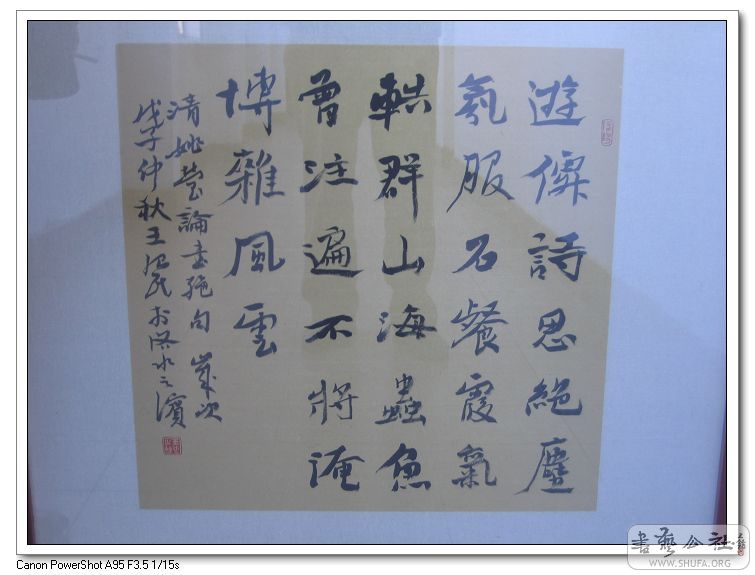 遊僊詩思絕塵
氛服石餐霞氣
軼群山海蟲魚
曾注遍不將淹
博雜風雲
清姚瑩論書絕句 歲次
戊子仲秋王於洛水之濱
書藝公社
WWW.SHUFA.ORG
Canon PowerShot A95 F3.5 1/15s